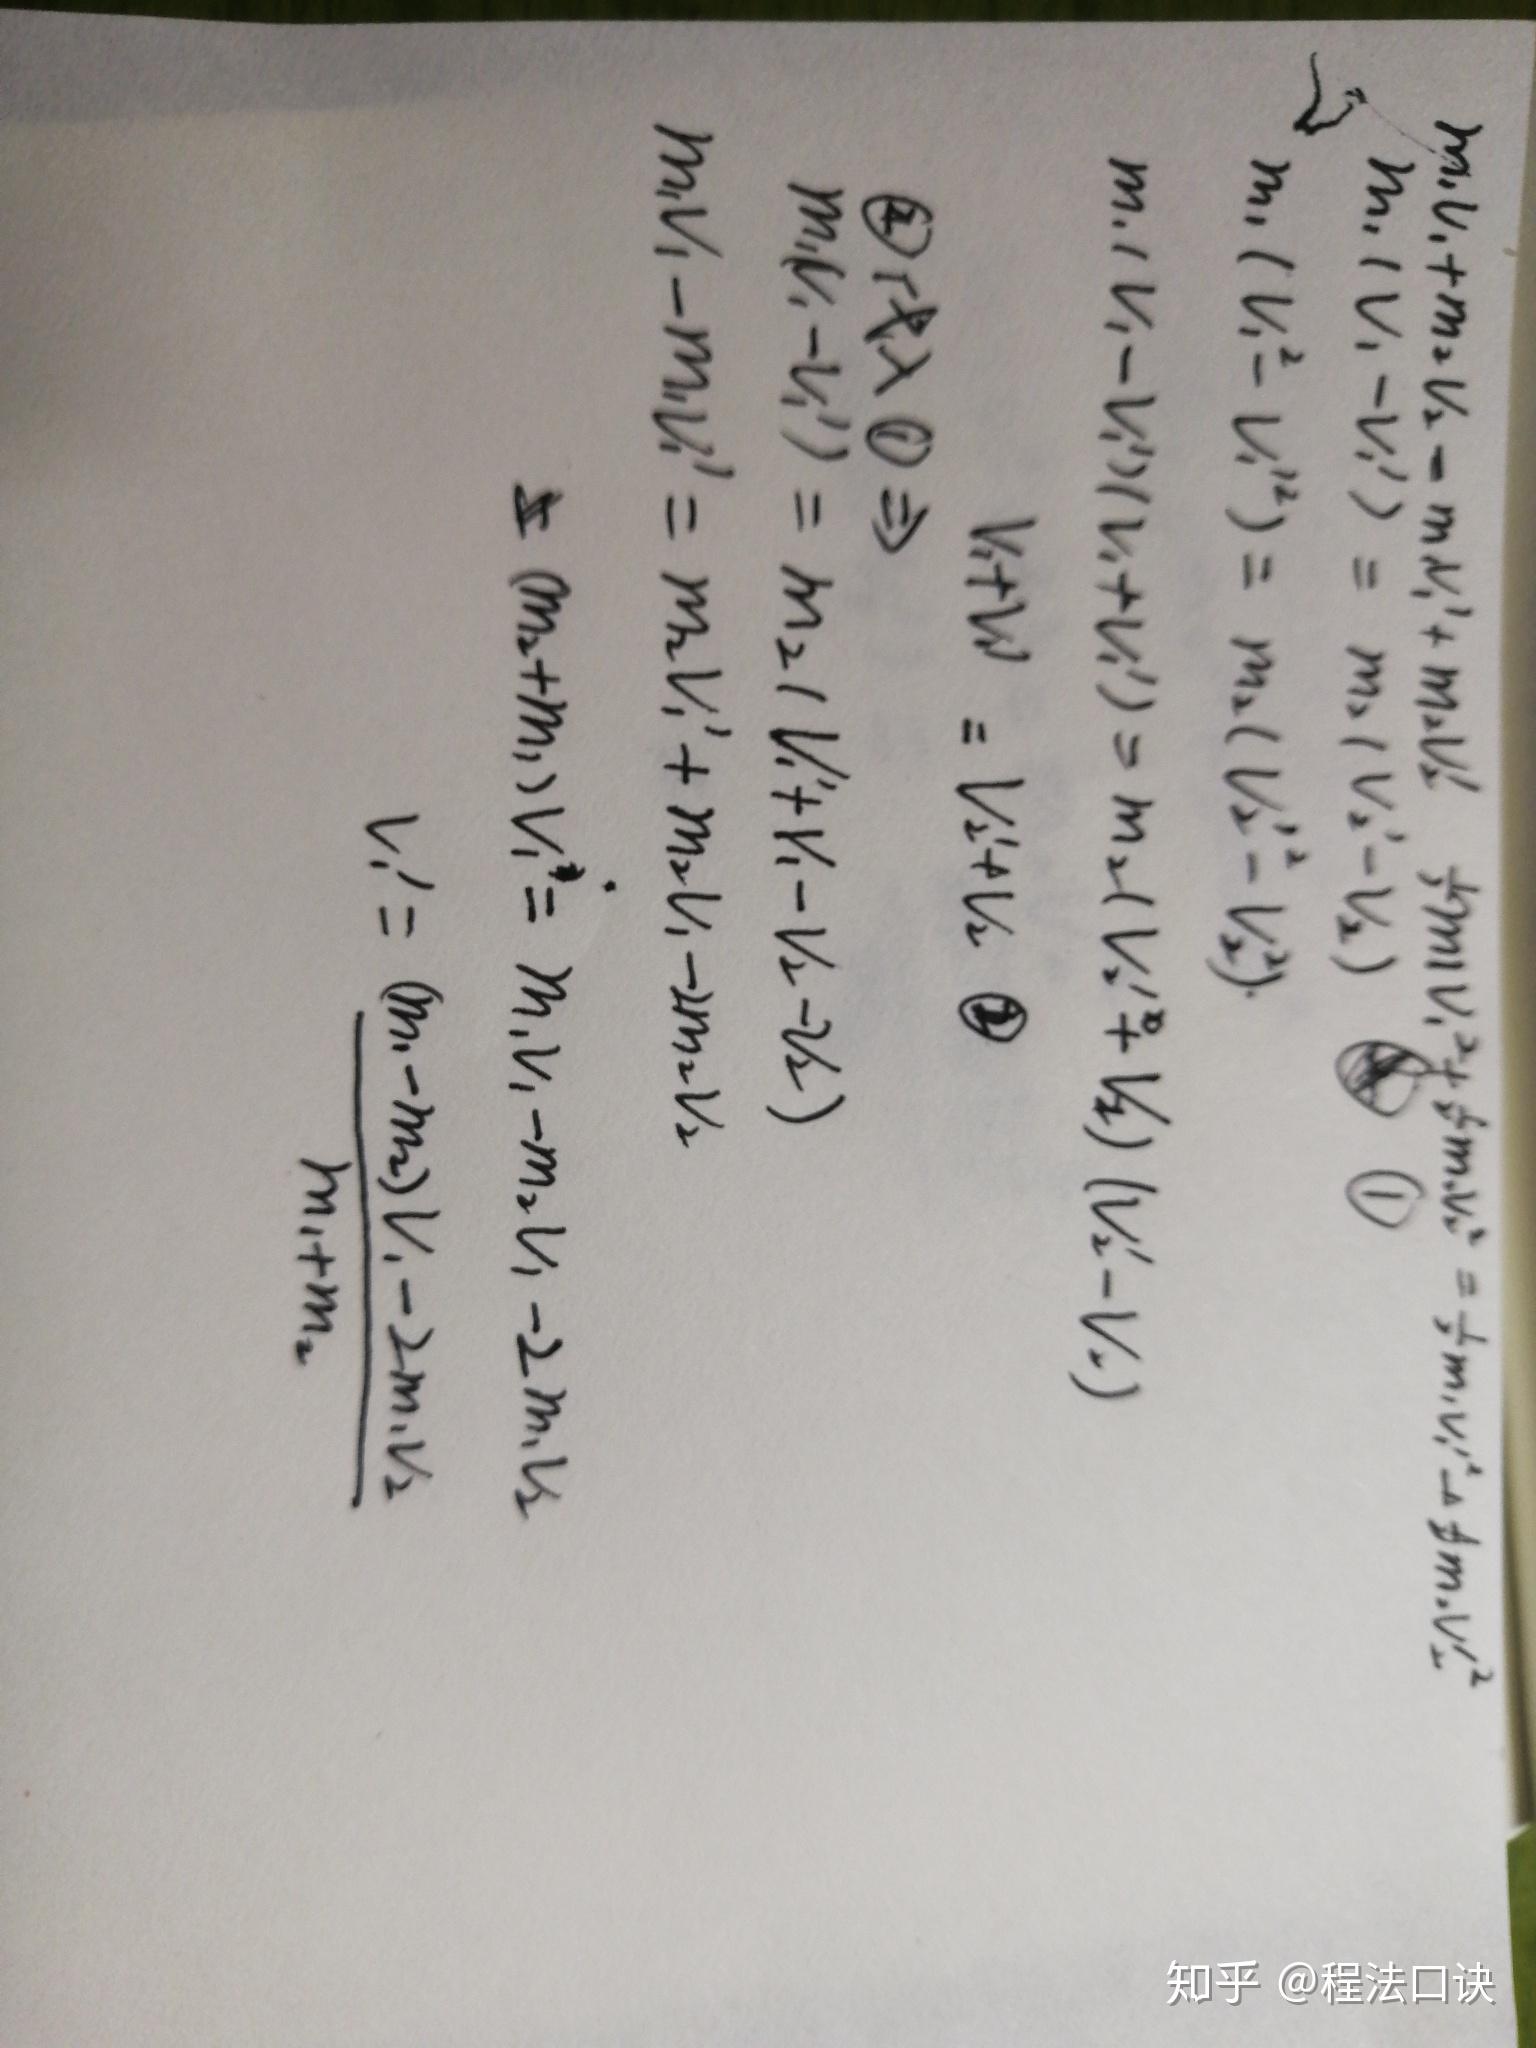 m₁V₁+m₂V₂=m₁V₁'+m₂V₂' ½m₁V₁²+½m₂V₂²=½m₁V₁'²+½m₂V₂'²
m₁(V₁-V₁')=m₂(V₂'-V₂) ①
m₁(V₁²-V₁'²)=m₂(V₂'²-V₂²).
m₁(V₁-V₁')(V₁+V₁')=m₂(V₂'+V₂)(V₂'-V₂)
V₁+V₁'=V₂'+V₂ ②
②代入①⇒
m₁(V₁-V₁')=m₂(V₁'+V₁-V₂-V₂)
m₁V₁-m₁V₁'=m₂V₁'+m₂V₁-2m₂V₂
(m₂+m₁)V₁'=m₁V₁-m₂V₁-2m₁V₂
V₁'=(m₁-m₂)V₁-2m₁V₂
m₁+m₂
知乎 @程法口诀